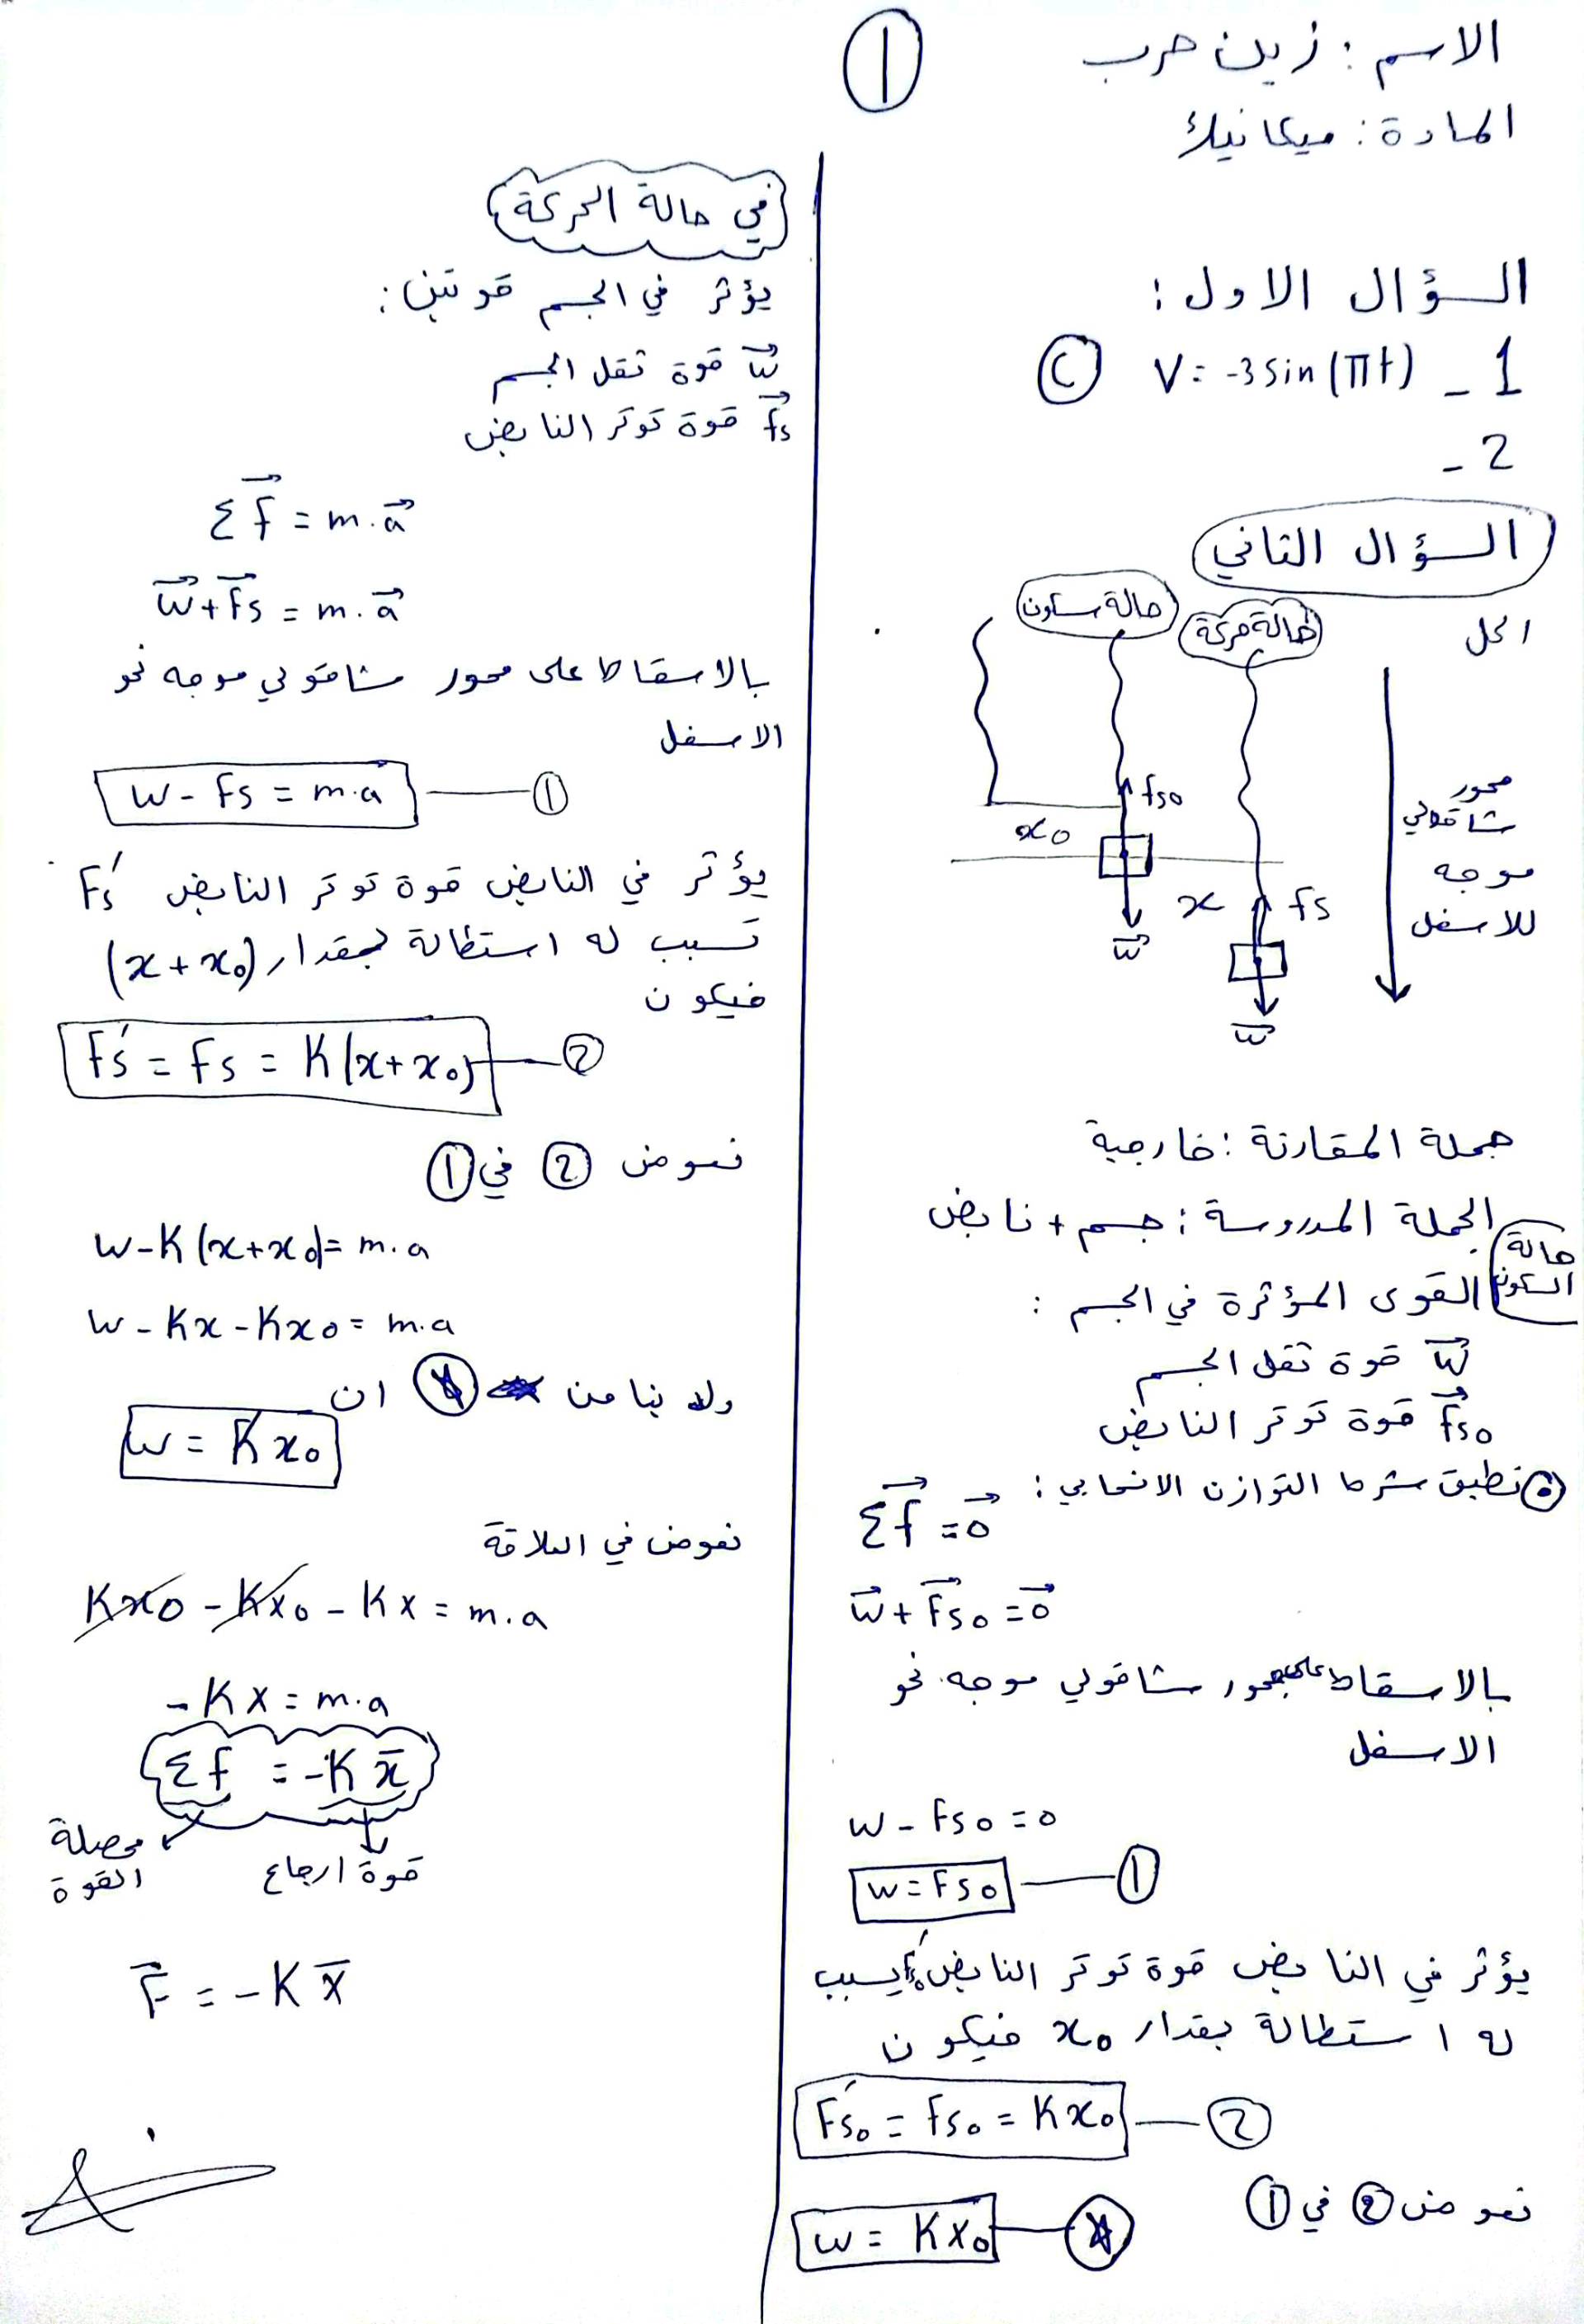 ①
الاسم : زين حرب
المادة : ميكانيك
السؤال الاول :
1 - V = -3 sin (πt) Ⓒ
2 -
السؤال الثاني
الحل
حالة سكون
حالة حركة
fs0
x0
x
fs
w
w
محور
شاقولي
موجه
للاسفل
جملة المقارنة : خارجية
الجملة المدروسة : جسم + نابض
حالة السكون
القوى المؤثرة في الجسم :
w⃗ قوة ثقل الجسم
f⃗s0 قوة توتر النابض
نطبق شرط التوازن الانسحابي :
Σf⃗ = 0⃗
w⃗ + F⃗s0 = 0⃗
بالاسقاط على محور شاقولي موجه نحو
الاسفل
w - Fs0 = 0
w = Fs0 — ①
يؤثر في النابض قوة توتر النابض يسبب
له استطالة بمقدار x0 فيكون
F's0 = Fs0 = Kx0 — ②
نعوض ② في ①
w = Kx0 — ★
في حالة الحركة
يؤثر في الجسم قوتين :
w⃗ قوة ثقل الجسم
f⃗s قوة توتر النابض
Σf⃗ = m.a⃗
w⃗ + F⃗s = m.a⃗
بالاسقاط على محور شاقولي موجه نحو
الاسفل
W - Fs = m.a — ①
يؤثر في النابض قوة توتر النابض F's
تسبب له استطالة بمقدار (x + x0)
فيكون
F's = Fs = K(x + x0) — ②
نعوض ② في ①
W - K(x + x0) = m.a
W - Kx - Kx0 = m.a
ولدينا من ★ ان
w = Kx0
نعوض في العلاقة
Kx0 - Kx0 - Kx = m.a
- Kx = m.a
Σf = -K x̄
محصلة القوة
قوة ارجاع
F̄ = -K x̄